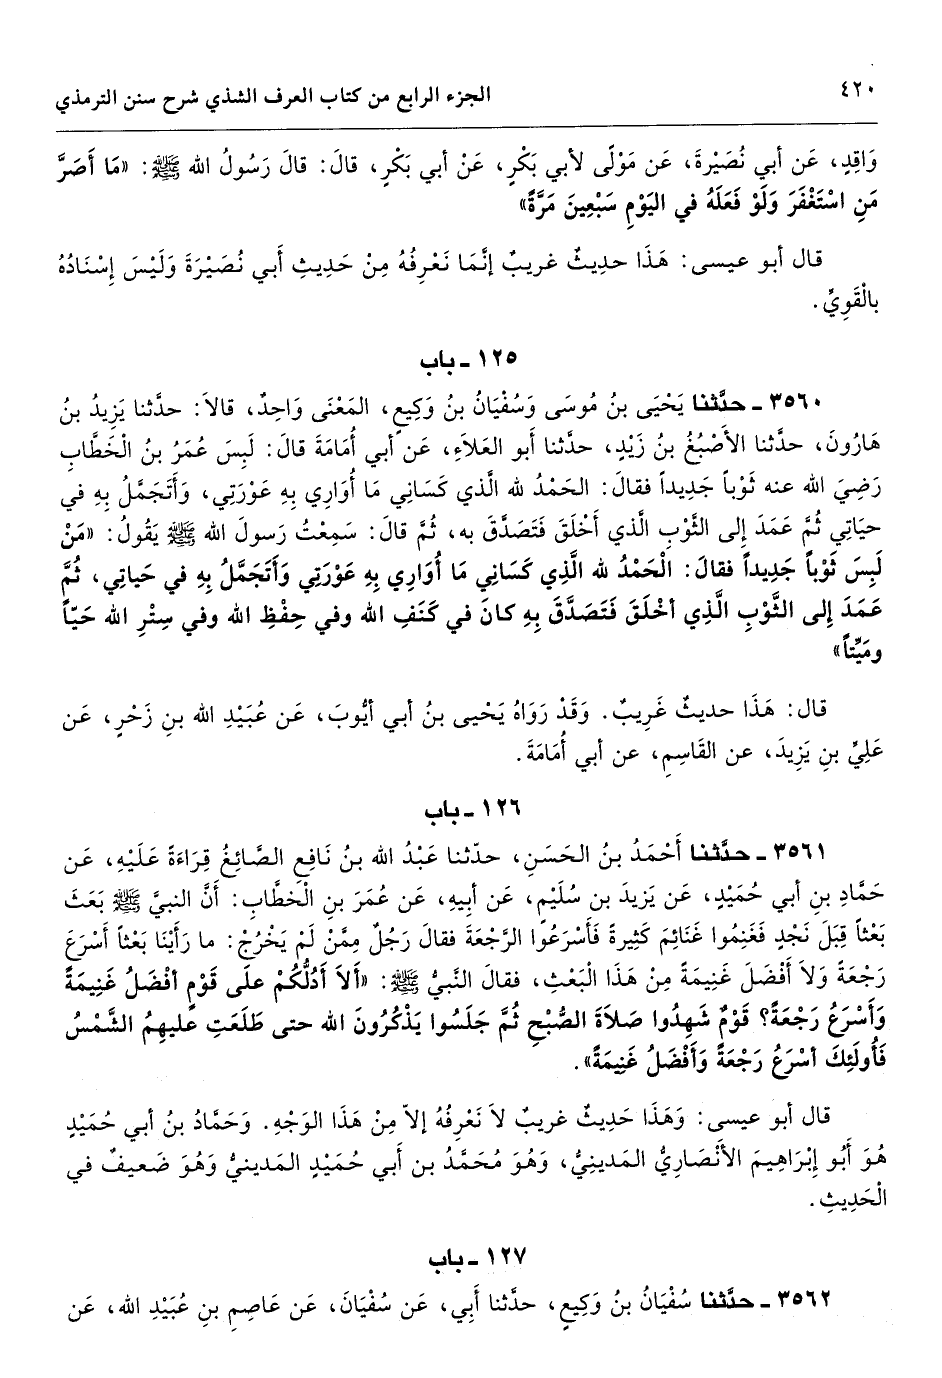 ٤٢٠
الجزء الرابع من كتاب العرف الشذي شرح سنن الترمذي
وَاقِدٍ، عَن أبي نُصَيْرةَ، عَن مَوْلًى لأبي بَكْرٍ، عَنْ أبي بَكْرٍ، قالَ: قالَ رَسُولُ الله ﷺ: «مَا أَصَرَّ
مَنِ اسْتَغْفَرَ وَلَوْ فَعَلَهُ في اليَوْمِ سَبْعِينَ مَرَّةً»
قال أبو عيسى: هَذَا حديثٌ غريبٌ إنَّمَا نَعْرِفُهُ مِنْ حَدِيثِ أَبي نُصَيْرَةَ وَلَيْسَ إِسْنَادُهُ
بالْقَوِيِّ.
١٢٥ ـ باب
٣٥٦٠ ـ حدَّثنا يَحْيَى بنُ مُوسَى وَسُفْيَانُ بنُ وَكِيعٍ، المَعْنَى وَاحِدٌ، قالاَ: حدَّثنا يَزِيدُ بنُ
هَارُونَ، حدَّثنا الأَصْبُغُ بنُ زَيْدٍ، حدَّثنا أبو العَلاَءِ، عَن أبي أُمَامَةَ قالَ: لَبِسَ عُمَرُ بنُ الْخَطَّابِ
رَضِيَ الله عنه ثَوْباً جَدِيداً فقالَ: الحَمْدُ لله الَّذي كَسَاني مَا أُوَارِي بِهِ عَوْرَتِي، وَأَتَجَمَّلُ بِهِ في
حيَاتِي ثُمَّ عَمَدَ إلى الثَّوْبِ الَّذي أَخْلَقَ فَتَصَدَّقَ به، ثُمَّ قالَ: سَمِعْتُ رَسولَ الله ﷺ يَقُولُ: «مَنْ
لَبِسَ ثَوْباً جَدِيداً فقالَ: الْحَمْدُ لله الَّذِي كَسَانِي مَا أُوَارِي بِهِ عَوْرَتي وَأَتَجَمَّلُ بِهِ في حَياتِي، ثُمَّ
عَمَدَ إِلى الثَّوْبِ الَّذِي أخْلَقَ فَتَصَدَّقَ بِهِ كانَ في كَنَفِ الله وفي حِفْظِ الله وفي سِتْرِ الله حَيّاً
ومَيِّتاً»
قال: هَذَا حديثٌ غَرِيبٌ. وَقَدْ رَوَاهُ يَحْيى بنُ أبي أيُّوبَ، عَن عُبَيْدِ الله بنِ زَحْرٍ، عَن
عَلِيِّ بنِ يَزِيدَ، عن القَاسِمِ، عن أبي أُمَامَةَ.
١٢٦ ـ باب
٣٥٦١ ـ حدَّثنا أَحْمَدُ بنُ الحَسَنِ، حدّثنا عَبْدُ الله بنُ نَافِعٍ الصَّائِغُ قِرَاءَةً عَلَيْهِ، عَن
حَمَّادِ بنِ أبي حُمَيْدٍ، عَن يَزِيدَ بنِ سُلَيْمٍ، عَن أبِيهِ، عَن عُمَرَ بنِ الْخطَّابِ: أَنَّ النبيَّ ﷺ بَعَثَ
بَعْثاً قِبَلَ نَجْدٍ فَغَنِمُوا غَنَائِمَ كَثِيرَةً فَأَسْرَعُوا الرَّجْعَةَ فقالَ رَجُلٌ مِمَّنْ لَمْ يَخْرُجْ: ما رَأَيْنَا بَعْثاً أَسْرَعَ
رَجْعَةً وَلاَ أَفْضَلَ غَنِيمَةً مِنْ هَذَا الْبَعْثِ، فقالَ النَّبيُّ ﷺ: «أَلاَ أَدُلُّكُمْ علَى قَوْمٍ أفْضَلُ غَنِيمَةً
وَأَسْرَعُ رَجْعَةً؟ قَوْمٌ شَهِدُوا صَلاَةَ الصُّبْحِ ثُمَّ جَلَسُوا يَذْكُرُونَ الله حتى طَلَعَتِ عليهِمُ الشَّمْسُ
فَأُولَئِكَ أسْرَعُ رَجْعَةً وَأَفْضَلُ غَنِيمَةً».
قال أبو عيسى: وَهَذَا حَدِيثٌ غريبٌ لاَ نَعْرِفُهُ إلاّ مِنْ هَذَا الوَجْهِ. وَحَمَّادُ بن أبي حُمَيْدٍ
هُوَ أَبُو إبْرَاهِيمَ الأَنْصَارِيُّ المَدينِيُّ، وَهُوَ مُحَمَّدُ بن أَبي حُمَيْدٍ المَدينيُّ وَهُوَ ضَعيفٌ في
الْحَدِيثِ.
١٢٧ ـ باب
٣٥٦٢ ـ حدَّثنا سُفْيَانُ بنُ وَكِيعٍ، حدَّثنا أَبِي، عَن سُفْيَانَ، عَن عَاصِمِ بنِ عُبَيْدِ الله، عَن